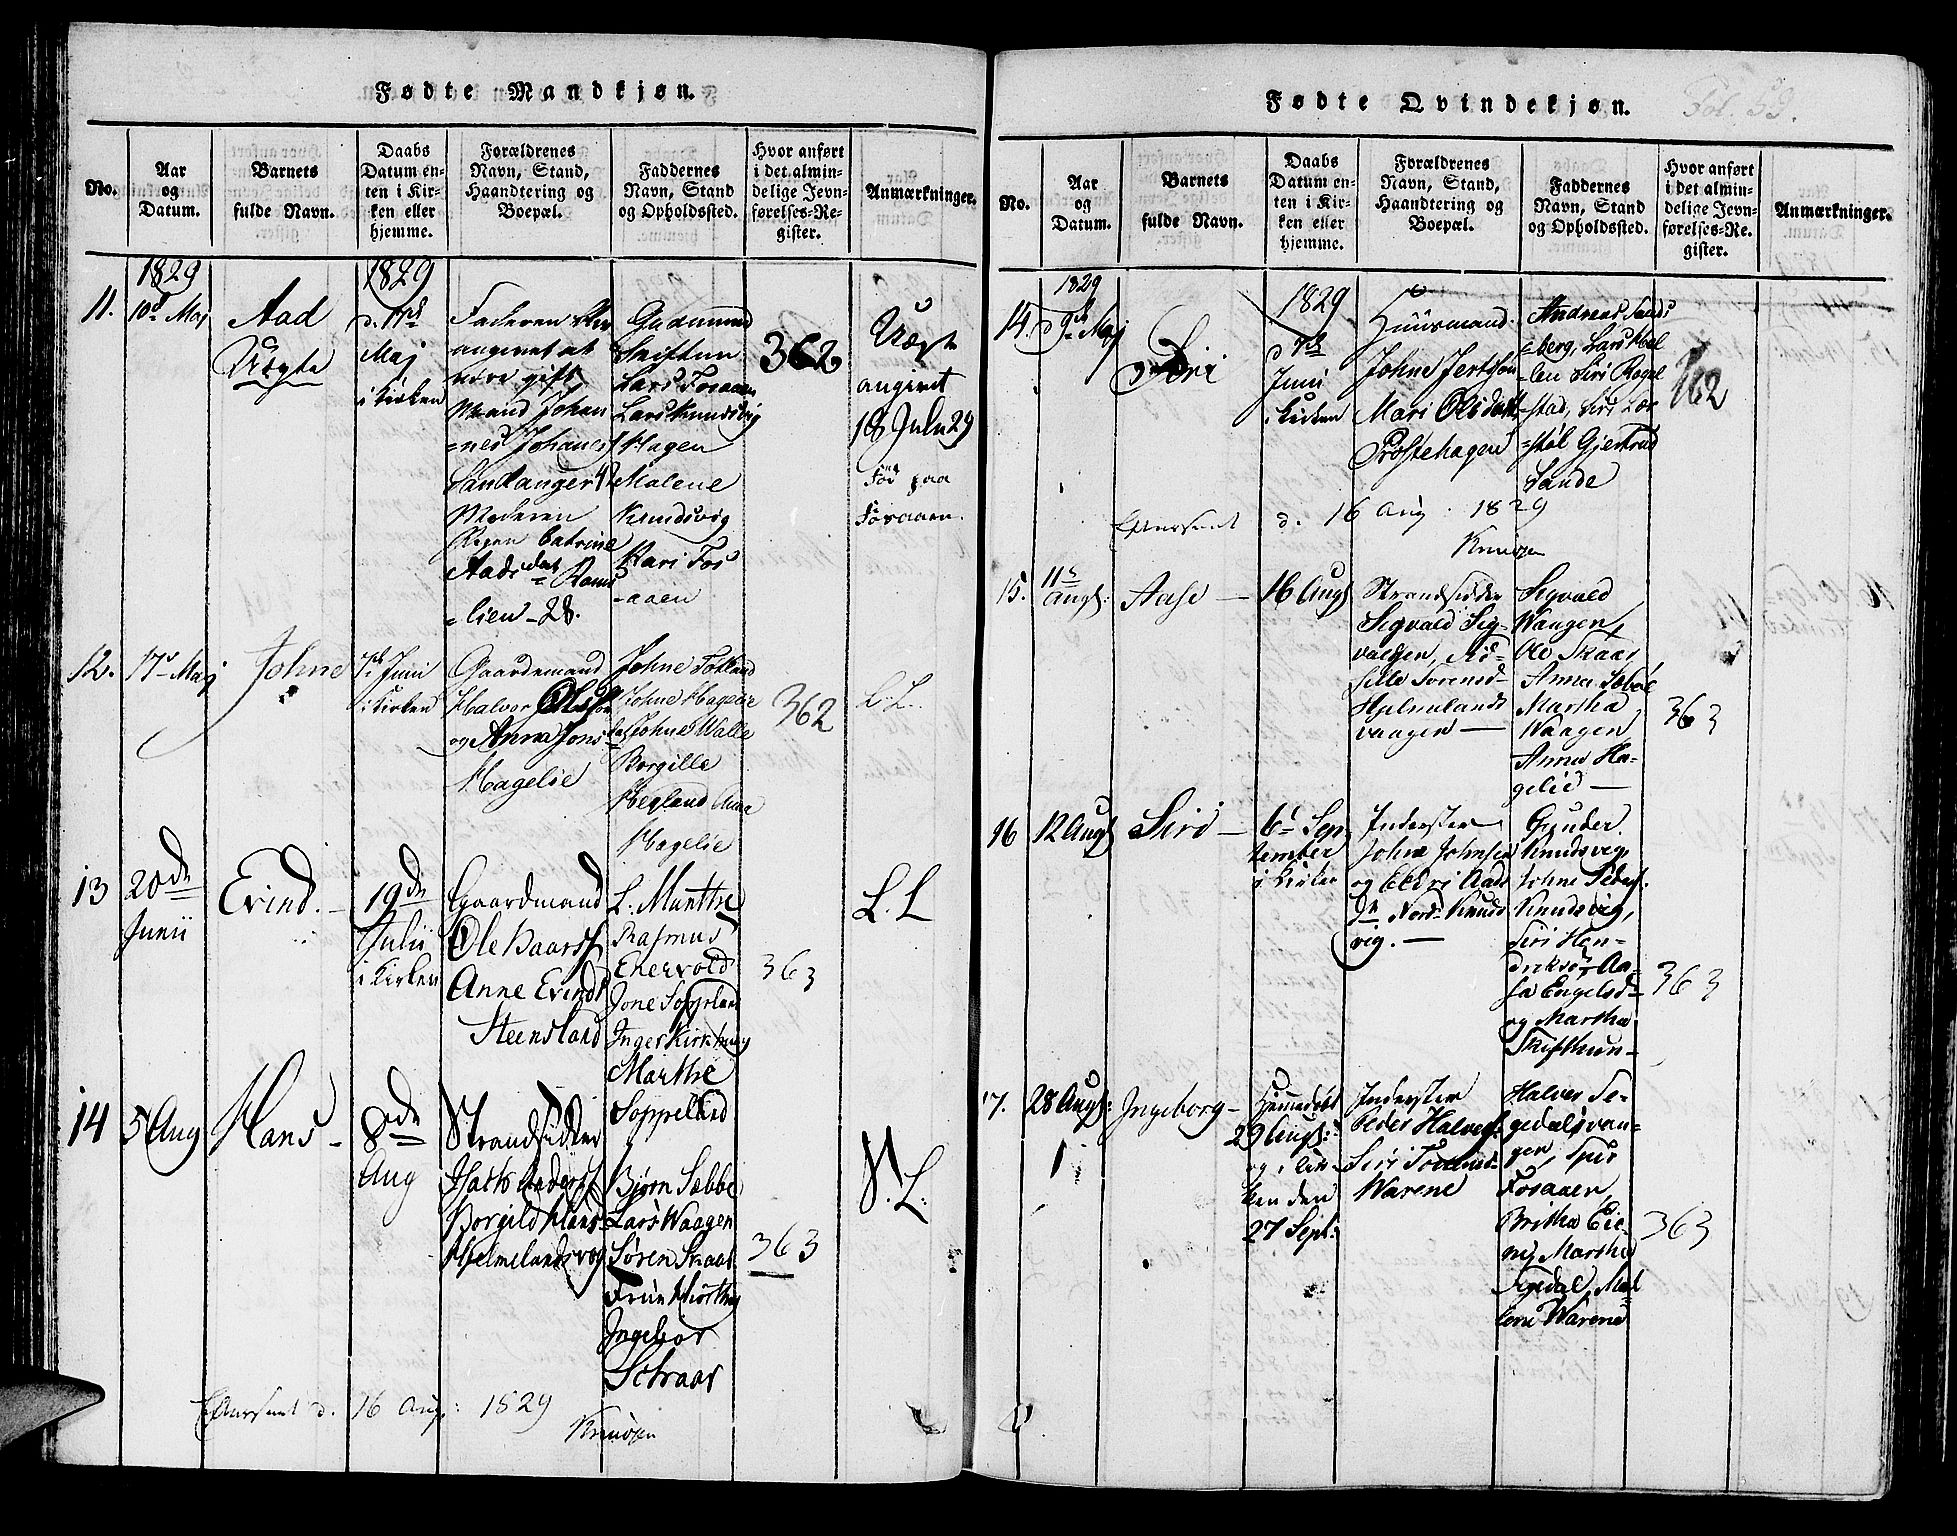 Fødte Mandkjøn.
No.
Aar
og
Datum.
Barnets
fulde Navn.
Daabs
Datum en-
ten i Kir-
ken eller
hjemme.
Forældrenes
Navn, Stand,
Haandtering og
Boepæl.
Faddernes
Navn, Stand
og Opholdssted.
Hvor anført
i det almin-
delige Jevn-
førelses-Re-
gister.
Anmærkninger.
1829
11.
10d Maj
Aad
Uægte
1829
d. 17d
Maj
i Kirken
Faderen
angivet at
være gift
Mand Johan
=nes Johanes
Sandanger 42
Moderen
Pigen Catrine
Aads dat
=lien 28.
Gudmund
Skiftun
Lars Fosaaen
Lars Knudsvig
Hagen
Malene
Knudsvig
Kari Fos
-aaen
362
Uægte
angivet
18 July 29
Fød paa
Fosaaen.
12.
17 Maj
Johne
7d Juni
i Kirken
Gaardemand
Halvor Olsen
og Anna Jons
Hagelie
Johne Tofland
Johne Hagelie
Johne Walle
Borgille
Hegland Anna
Hagelie
362
L. L.
13
20de
Junii
Evind.
19de
Julii
i Kirken
Gaardmand
Ole Baars
Anne Evinds
Steensland
L. Munthe
Rasmus
Enervold
Jone Soppeland
Inger Kirkhuug
Marthe
Soppeland
363
L. L
14
5 Aug
Hans -
8de
Aug
Strandsidder
Borgild Hans
Hjelmelandsvog
Bjørn Sæbbe
Lars Waagen
Søren Skaar
Frue Hiorthuug
Ingebor
Schraar
363
S. L.
d. 16 Aug: 1829
Knudsen
Fødte Qvindekjøn.
Fol. 59.
No.
Aar
og
Datum.
Barnets
fulde Navn.
Daabs
Datum en-
ten i Kir-
ken eller
hjemme.
Forældrenes
Navn, Stand,
Haandtering og
Boepæl.
Faddernes
Navn, Stand
og Opholdssted.
Hvor anført
i det almin-
delige Jevn-
førelses-Re-
gister.
Anmærkninger.
1829
14.
d 9d Maj
Siri
1829
d 7de
Juni
i Kirken
Huusmand
Johne Jertsøn
Mari Olsdatt
Prestehagen
Andreas Sands
=berg, Lars Mæl
-len Siri Rogel
stad, Siri Lær
=støl Gjertrud
Sande
d. 16 Aug. 1829
Knudsen
15.
11
Augs:
Aase
16 Augs
Strandsidder
Sigvald Sig-
valdsen,
Hjelmelands
vaagen
Sigvald
Waagen,
Ole Skaar,
Anna
Martha
Waagen
Anna Ha-
gelie
363
16
12 Augs
Siri
6d Sep
tember
i Kirken
Inderster
Johne Johnsen
og Aads
Nord Knuds
vig.
Gunder
Knudsvig,
Johne Peders.
Knudsvig,
Siri Hen-
driksd, Aa-
sa Engelsd
og Martha
Skifthun
363
17.
28 Augs:
Ingeborg
Hjemmedøbt
29 Augs:
og i Kir-
ken den
27 Sept:
Inderster
Peder Halvors.
Siri
Warene
Halvor Se-
gedalsvan-
gen,
Fosaaen,
Britha Eie
Martha
Segedal, Mal
lene Warene
363